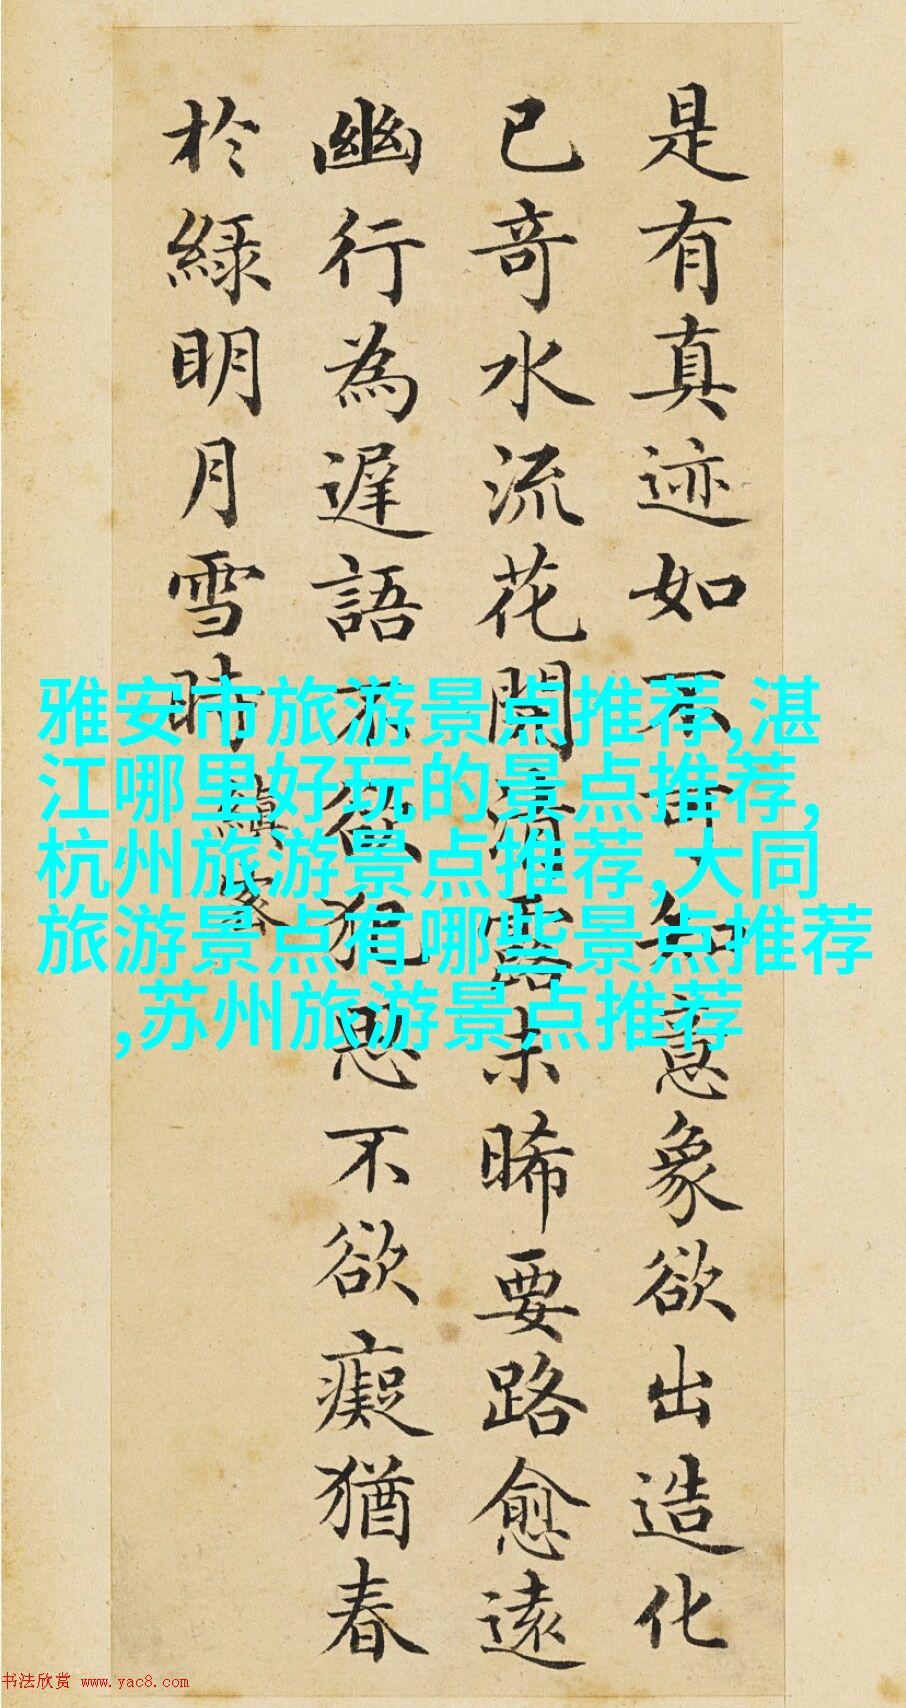 是有真迹如不可知意象欲出造化
已奇水流花開清露未晞要路愈遠
幽行為遲語不欲犯思不欲癡猶春
於綠明月雪時
縝密
雅安市旅游景点推荐,湛
江哪里好玩的景点推荐,
杭州旅游景点推荐,大同
旅游景点有哪些景点推荐
,苏州旅游景点推荐
书法欣赏 www.yac8.com